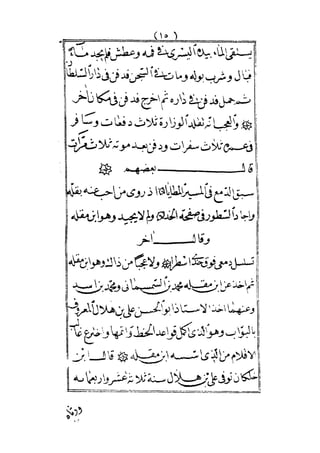 (١٥)
يستقى الماء بيده اليسرى فى فمه وعطش فلم يجد ماء
فبال وشرب بوله ومات فى السجن فدفن فى دار السلطان
ثم حمل فدفن فى داره ثم اخرج فدفن فى مكان آخر
والعجب انه تقلد الوزارة ثلاث دفعات وسافر
فى عمره ثلاث سفرات ودفن بعد موته ثلاث مرات
قال بعضهم
سبق الدمع فى المسير المطايا اذ روى من احب عنه بقله
واجاد السطور فى صفحة الخد ولم لا يجيد وهو ابن مقله
وقال آخر
تسلسل دمعى فوق خدى اسطرا ولا عجبا من ذاك وهو ابن مقله
ثم اخذ عن ابن مقله محمد بن السمسمانى ومحمد بن اسد
وعنهما اخذ الاستاذ ابو الحسن على بن هلال المعروف
بالبواب وهو الذى اكمل قواعد الخط واتمها واخترع غالب
الاقلام من الذى اسسه ابن مقله قال ابن
خلكان توفى على بن هلال سنة ثلاثة عشر واربعمائه